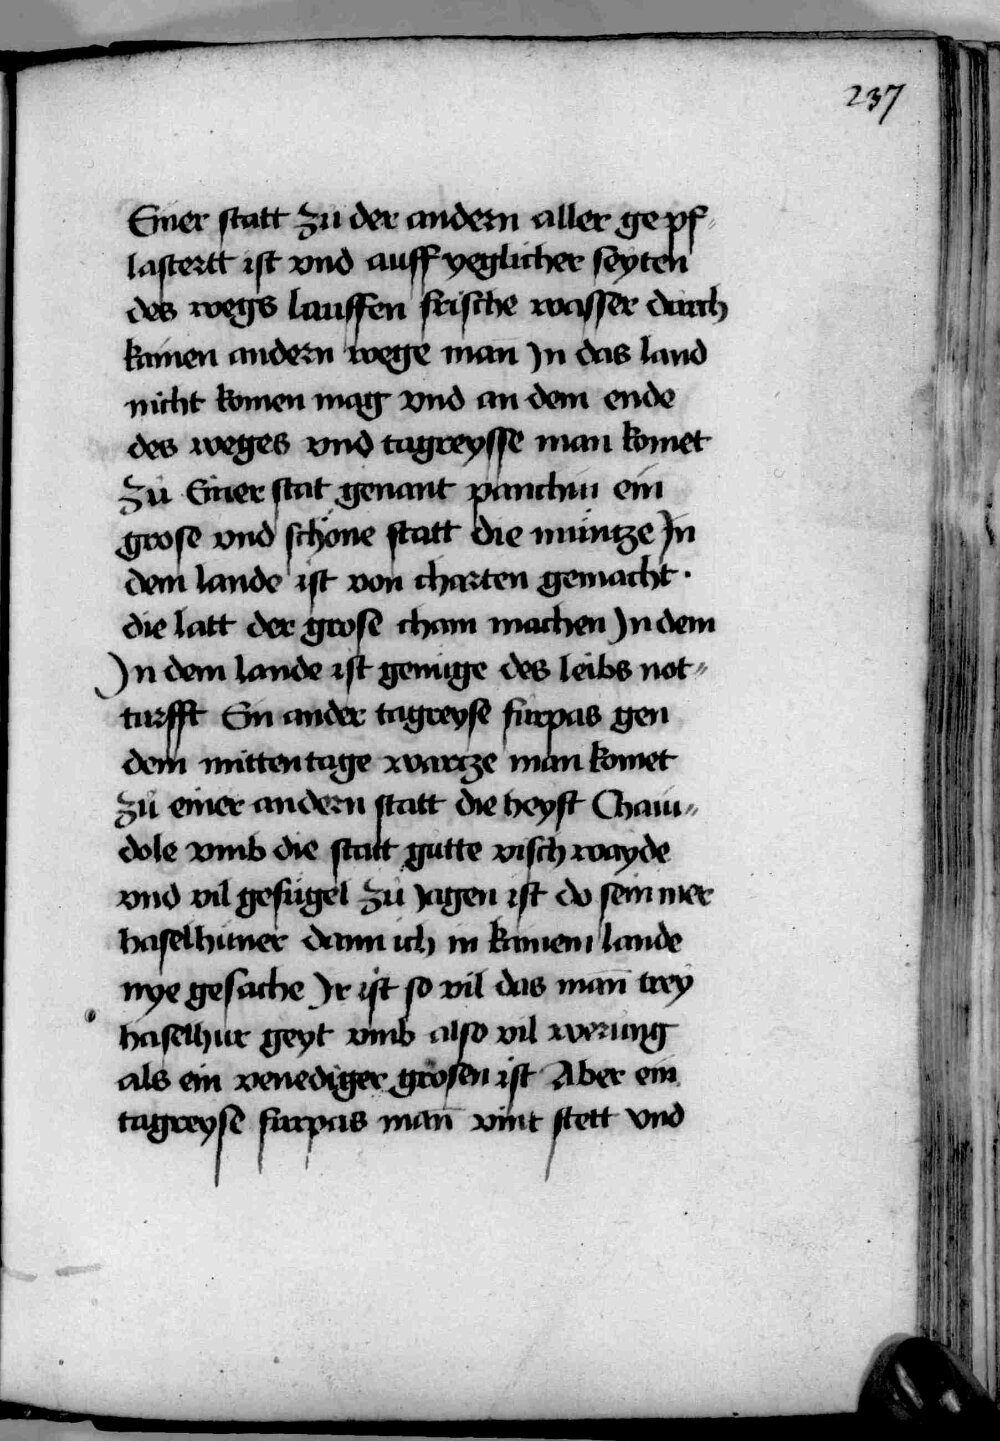 237
Einer statt zu der andern aller ge pf-
lastertt ist vnd auff yeglicher seyten
des wegs lauffen frische wasser durch
kainen andern wege man Jn das land
nicht komen mag vnd an dem ende
des weges vnd tagreysse man komet
zu Einer stat genant panchin ein
grose vnd schöne statt die müntze Jn
dem lande ist von charten gemacht ·
die latt der grose cham machen Jn dem
Jn dem lande ist genuge des leibs not-
turfft Ein ander tagreyse furpas gen
dem mittentage wartze man komet
zu einer andern statt die heyst Chain-
dole vmb die statt gutte visch wayde
vnd vil gefugel zu Jagen ist do sein mer
haselhuner dann ich in kainem lande
nye gesache Jr ist so vil das man̄ trey
haselhur geyt vmb also vil werung
als ein venediger grosen ist Aber ein
tagreyse furpas man̄ vint stett vnd